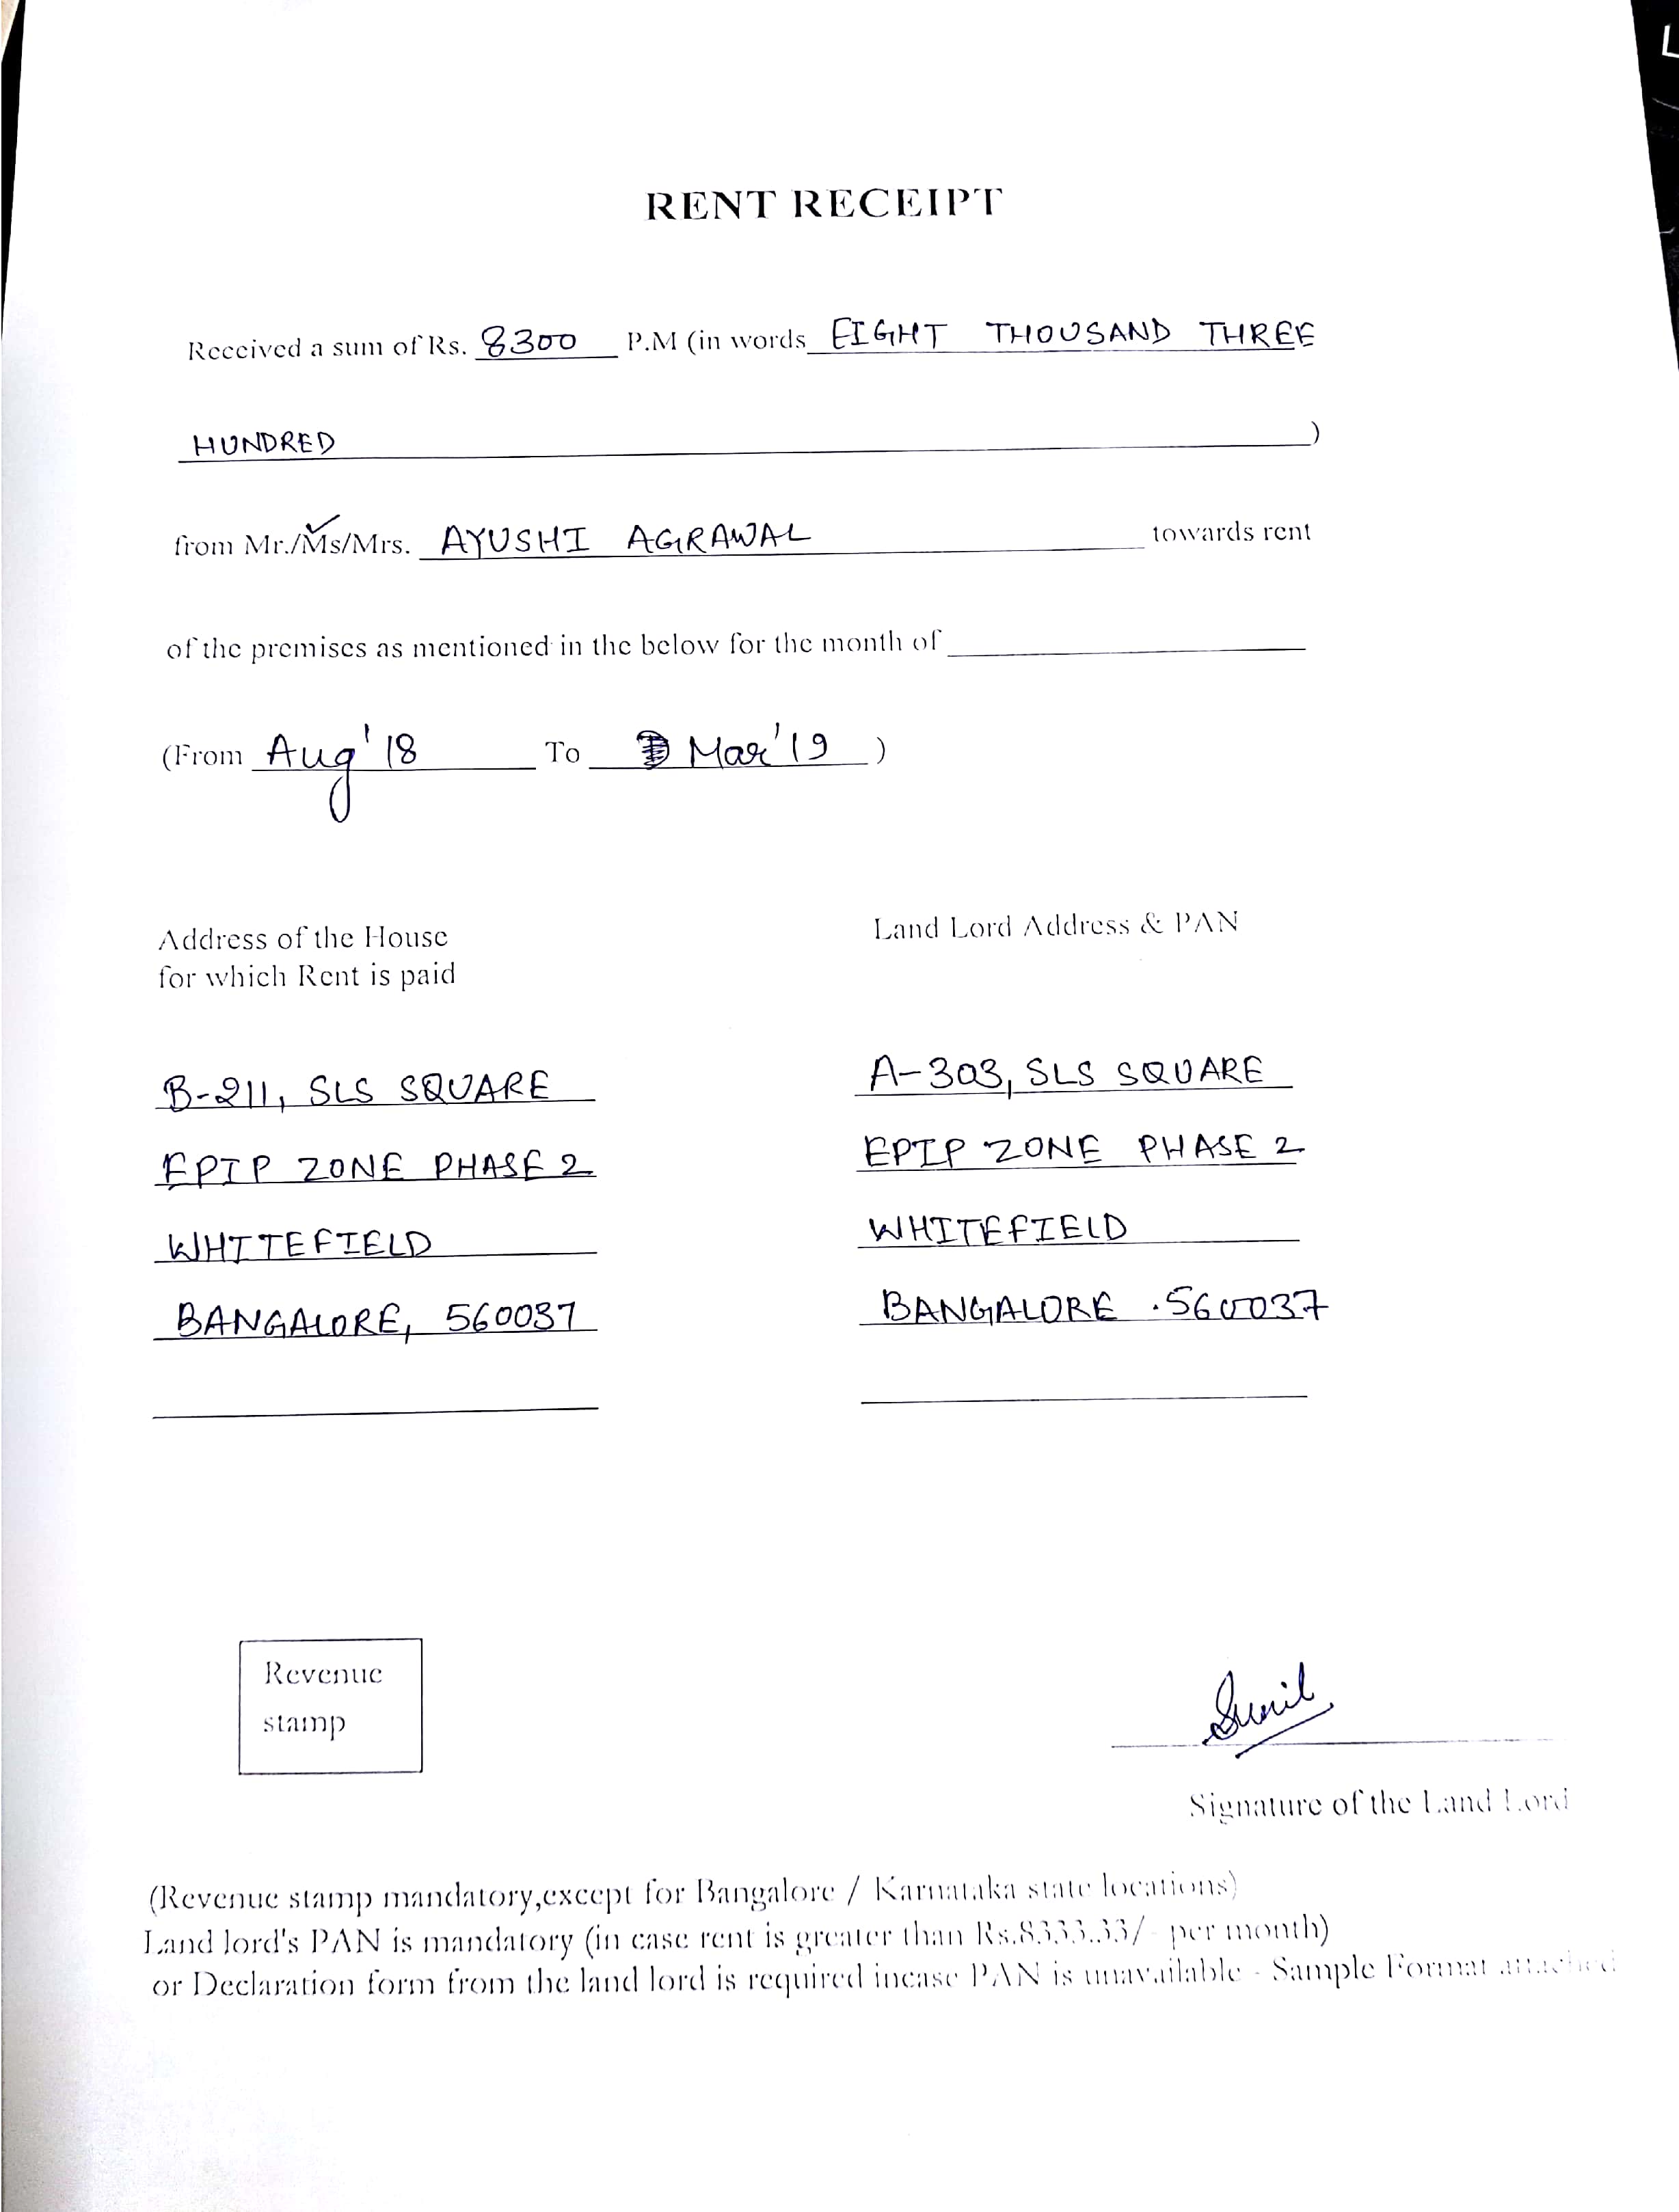 RENT RECEIPT
Received a sum of Rs. 8300 P.M (in words EIGHT THOUSAND THREE
HUNDRED )
from Mr./Ms/Mrs. AYUSHI AGRAWAL towards rent
of the premises as mentioned in the below for the month of
(From Aug'18 To Mar'19 )
Address of the House
for which Rent is paid
B-211, SLS SQUARE
EPIP ZONE PHASE 2
WHITEFIELD
BANGALORE, 560037
Land Lord Address & PAN
A-303, SLS SQUARE
EPIP ZONE PHASE 2
WHITEFIELD
BANGALORE .560037
Revenue
stamp
Sunil
Signature of the Land Lord
(Revenue stamp mandatory,except for Bangalore / Karnataka state locations)
Land lord's PAN is mandatory (in case rent is greater than Rs.8333.33/- per month)
or Declaration form from the land lord is required incase PAN is unavailable - Sample Format attached